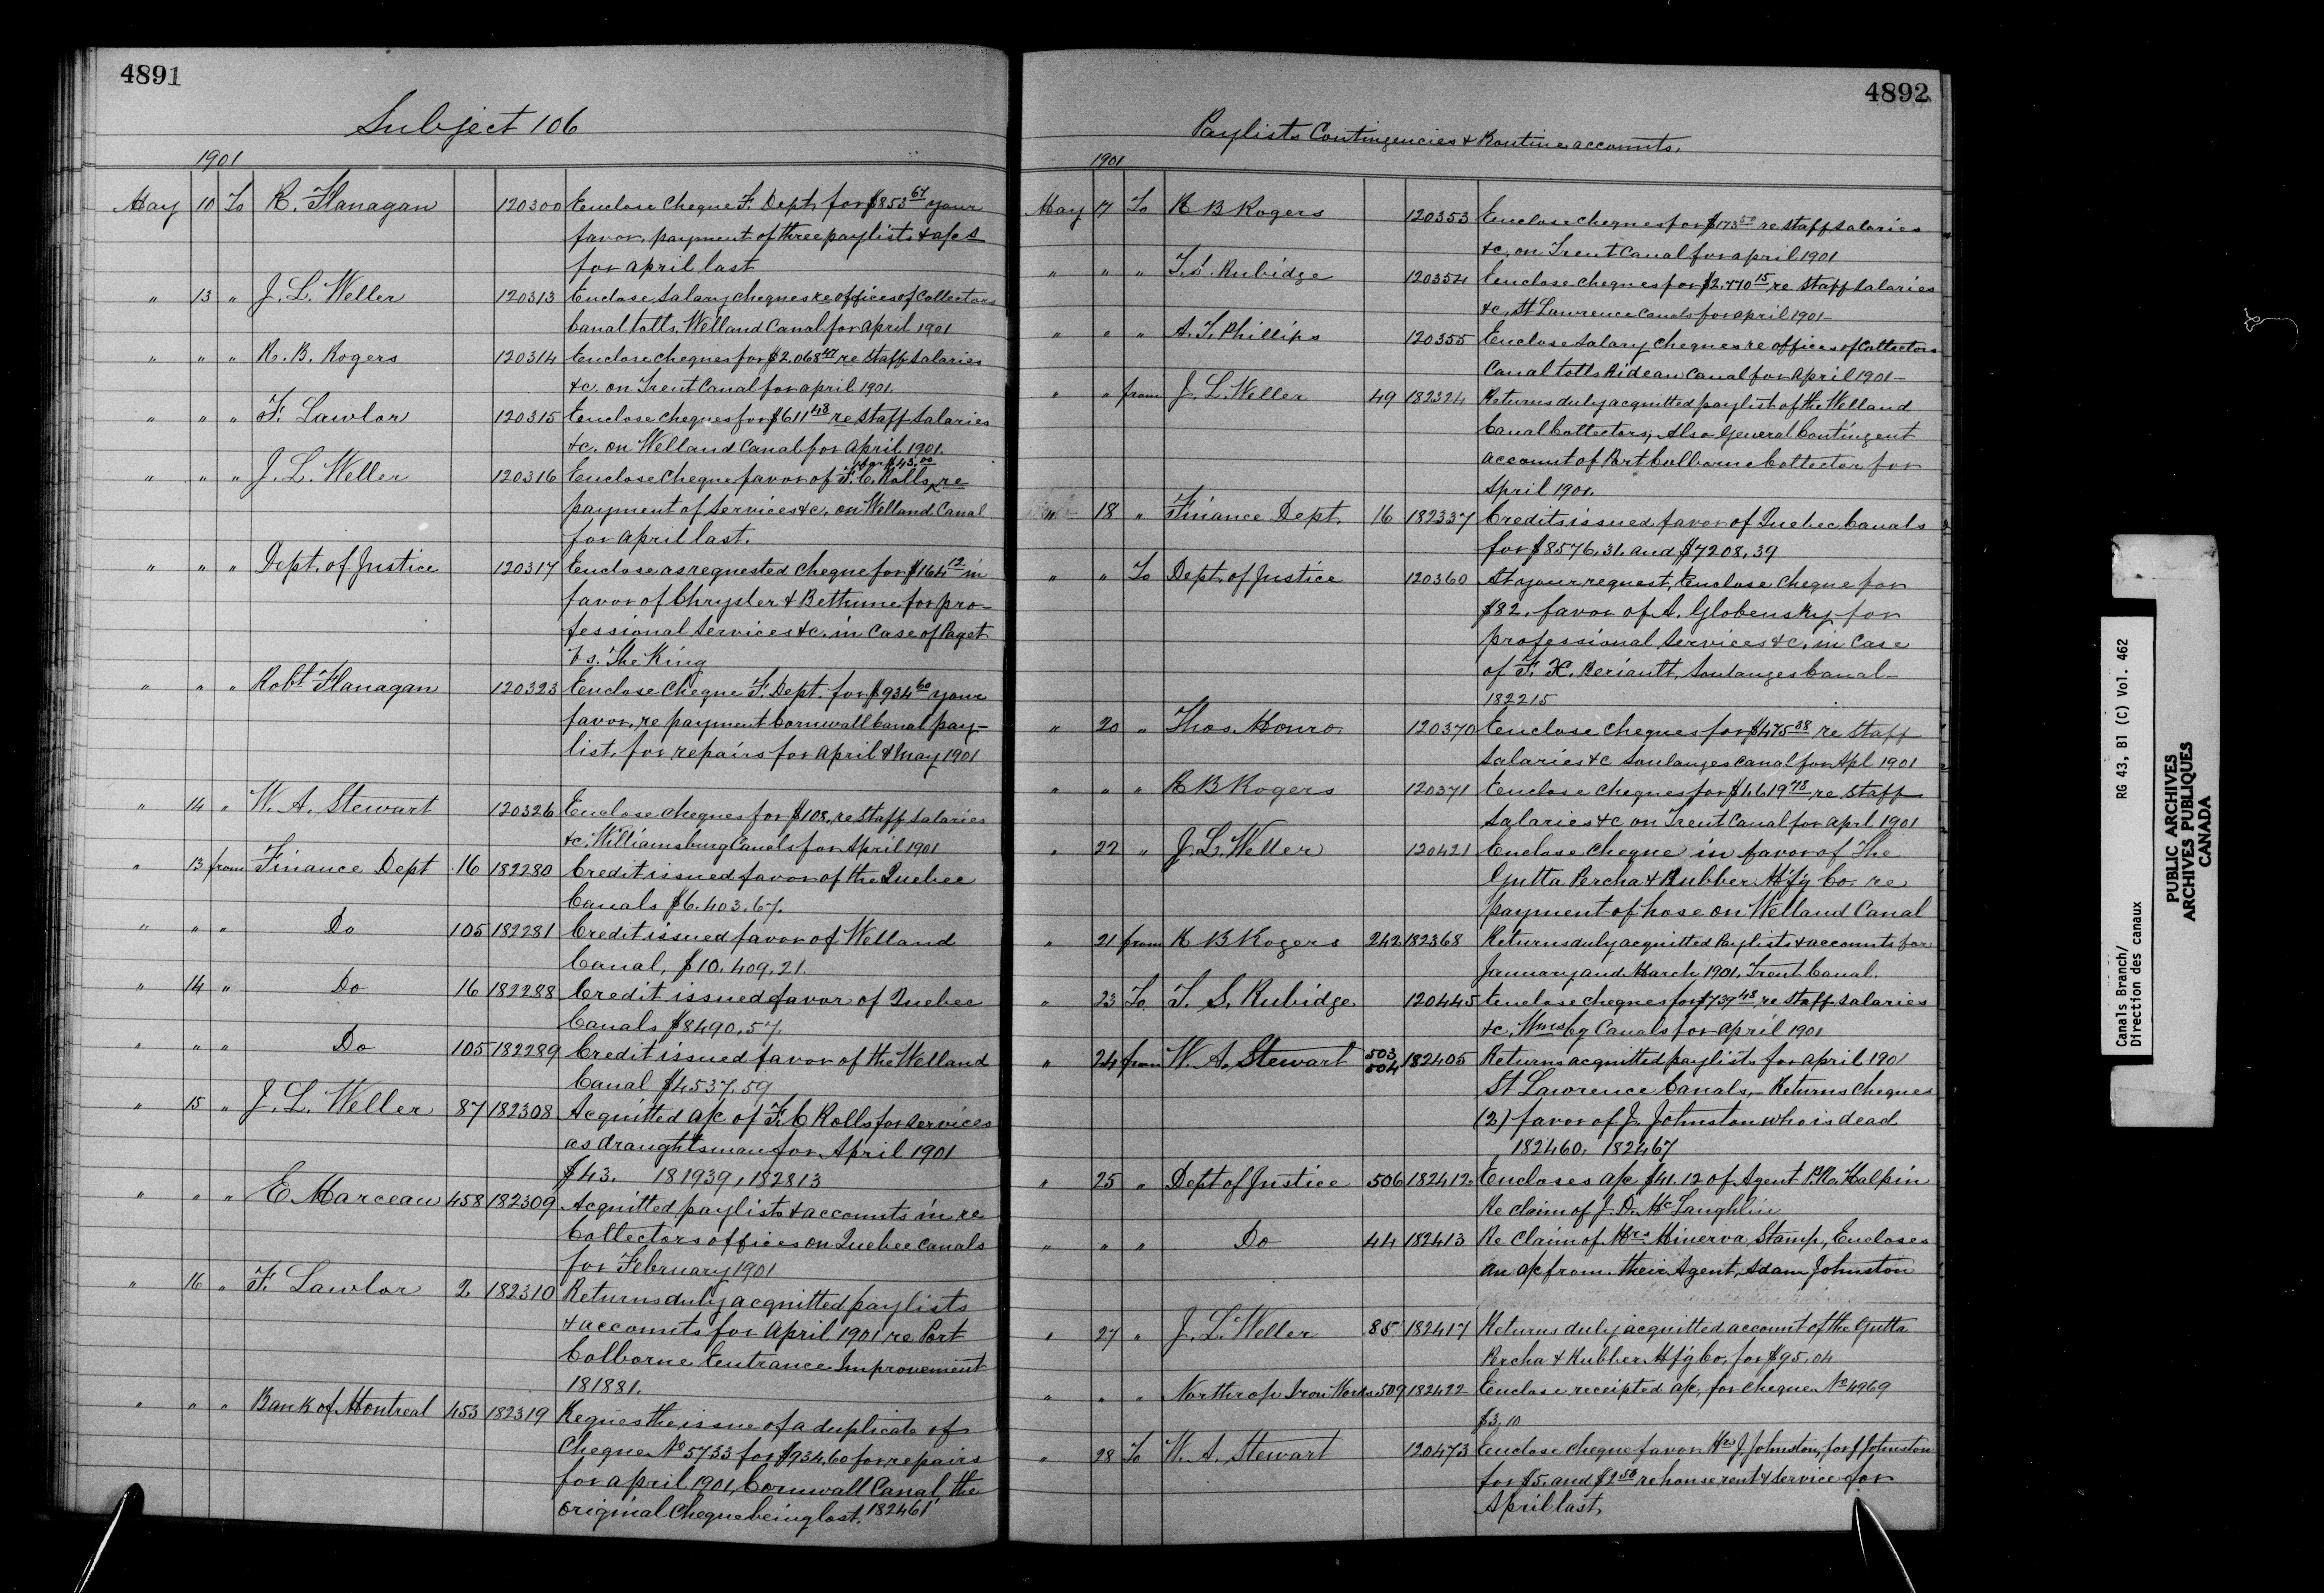 4891
Subject 106
1901
May 10 To R. Flanagan 120300 Enclose cheque F. Dept. for $853.67 your
favor, payment of three paylists & a/cs
for april last
" 13 " J. L. Weller 120313 Enclose Salary cheques re offices of Collectors
Canal tolls. Welland Canal for april 1901
" " " R. B. Rogers 120314 Enclose cheques for $2.068 47 re Staff Salaries
&c. on Trent Canal for april 1901.
" " " F. Lawlor 120315 Enclose cheques for $611 48 re Staff Salaries
&c. on Welland Canal for April 1901.
for $43.00
" " " J. L. Weller 120316 Enclose cheque favor of F. C. Rolls, re
payment of Services &c. on Welland Canal
for april last.
" " " Dept. of Justice 120317 Enclose as requested cheque for $164 12 in
favor of Chrysler & Bethune for pro-
fessional Services &c. in Case of Paget
Vs. The King
" " " Robt Flanagan 120323 Enclose cheque F. Dept. for $934 60 your
favor, re payment Cornwall Canal pay-
list, for repairs for april & may 1901
" 14 " W. A. Stewart 120326 Enclose cheques for $108. re Staff Salaries
&c. Williamsburg Canals for April 1901
" 13 from Finance Dept 16 182280 Credit issued favor of the Quebec
Canals $6.403.67.
" " " Do 105 182281 Credit issued favor of Welland
Canal, $10.409.21.
" 14 " Do 16 182288 Credit issued favor of Quebec
Canals $8490.57.
" " " Do 105 182289 Credit issued favor of the Welland
Canal $4537.59
" 15 " J. L. Weller 87 182308 Acquitted a/c of F. C Rolls for services
as draughtsman for April 1901
$43. 181939, 182813
" " " E Marceau 458 182309 Acquitted paylists & accounts in re
Collectors offices on Quebec Canals
for February 1901
" 16 " F. Lawlor 2 182310 Returns duly acquitted paylists
& accounts for April 1901 re Port
Colborne Entrance Improvement
181881.
" " " Bank of Montreal 453 182319 Reques the issue of a duplicate of
Cheque No 5733 for $934.60 for repairs
for april 1901, Cornwall Canal, the
original cheque being lost. 182461
4892
Paylists Contingencies & Routine accounts.
1901
May 17 To R B Rogers 120353 Enclose cheques for $173 50 re staff salaries
&c. on Trent Canal for april 1901
" " " T. S. Rubidge 120354 Enclose cheques for $2.770 15 re Staff Salaries
&c. St Lawrence Canals for april 1901-
" " " A. T. Phillips 120355 Enclose Salary cheques re offices of Collectors
Canal tolls Rideau Canal for April 1901-
" " from J. L. Weller 49 182324 Returns duly acquitted paylist of the Welland
Canal Collectors; Also General Contingent
account of Port Colborne Collector for
April 1901.
" 18 " Finance Dept. 16 182337 Credits issued favor of Quebec Canals
for $8576.31. and $7208.39
" " To Dept. of Justice 120360 At your request, Enclose cheque for
$82. favor of A. Globensky for
professional Services &c. in case
of F. X. Beriault, Soulanges Canal-
182215
" 20 " Thos. Monro 120370 Enclose cheques for $475 38 re Staff
Salaries &c Soulanges Canal for Apl 1901
" " " R B Rogers 120371 Enclose cheques for $1.619 78 re Staff
Salaries &c on Trent Canal for aprl 1901
" 22 " J. L. Weller 120421 Enclose cheque in favor of the
Gutta Percha & Rubber Mfg Co. re
payment of hose on Welland Canal
" 21 from R B Rogers 242 182368 Returns duly acquitted Paylists & accounts for
January and March 1901, Trent Canal.
" 23 To T. S. Rubidge 120445 Enclose cheques for $739 48 re Staff Salaries
&c. Wmsbg Canals for april 1901
" 24 from W. A. Stewart 503 504 182405 Returns acquitted paylists for april 1901
St Lawrence Canals, - Returns Cheques
(2) favor of J. Johnston who is dead
182460, 182467
" 25 " Dept of Justice 506 182412 Encloses a/c $41.12 of Agent Halpin
Re claim of J. D. McLaughlin
" " " Do 44 182413 Re Claim of Mrs Minerva Stamp, Encloses
an a/c from their Agent, Adam Johnston
" 27 " J. L. Weller 85 182417 Returns duly acquitted account of the Gutta
Percha & Rubber Mfg Co. for $95.04
" " " Northrop Iron Works 509 182422 Enclose receipted a/c, for cheque No 4969
$3.10
" 28 To W. A. Stewart 120473 Enclose cheque favor J. Johnston, for J Johnston
for $5. and $2 50 re house rent & Service for
April last.
Canals Branch/
Direction des canaux
RG 43, B1 (C) Vol. 462
PUBLIC ARCHIVES
ARCHIVES PUBLIQUES
CANADA